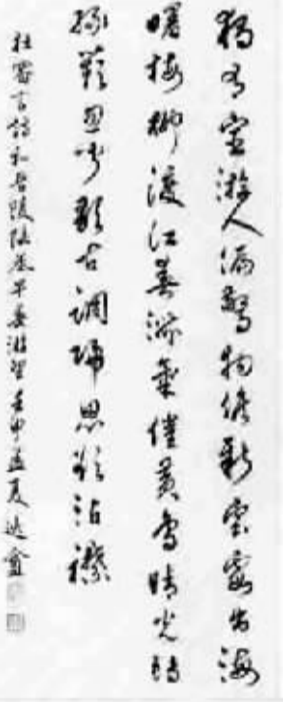 獨有宦游人偏驚物候新雲霞出海
曙梅柳渡江春淑氣催黃鳥晴光轉
綠蘋忽聞歌古調歸思欲沾襟
杜審言詩和晉陵陸丞早春游望壬申孟夏